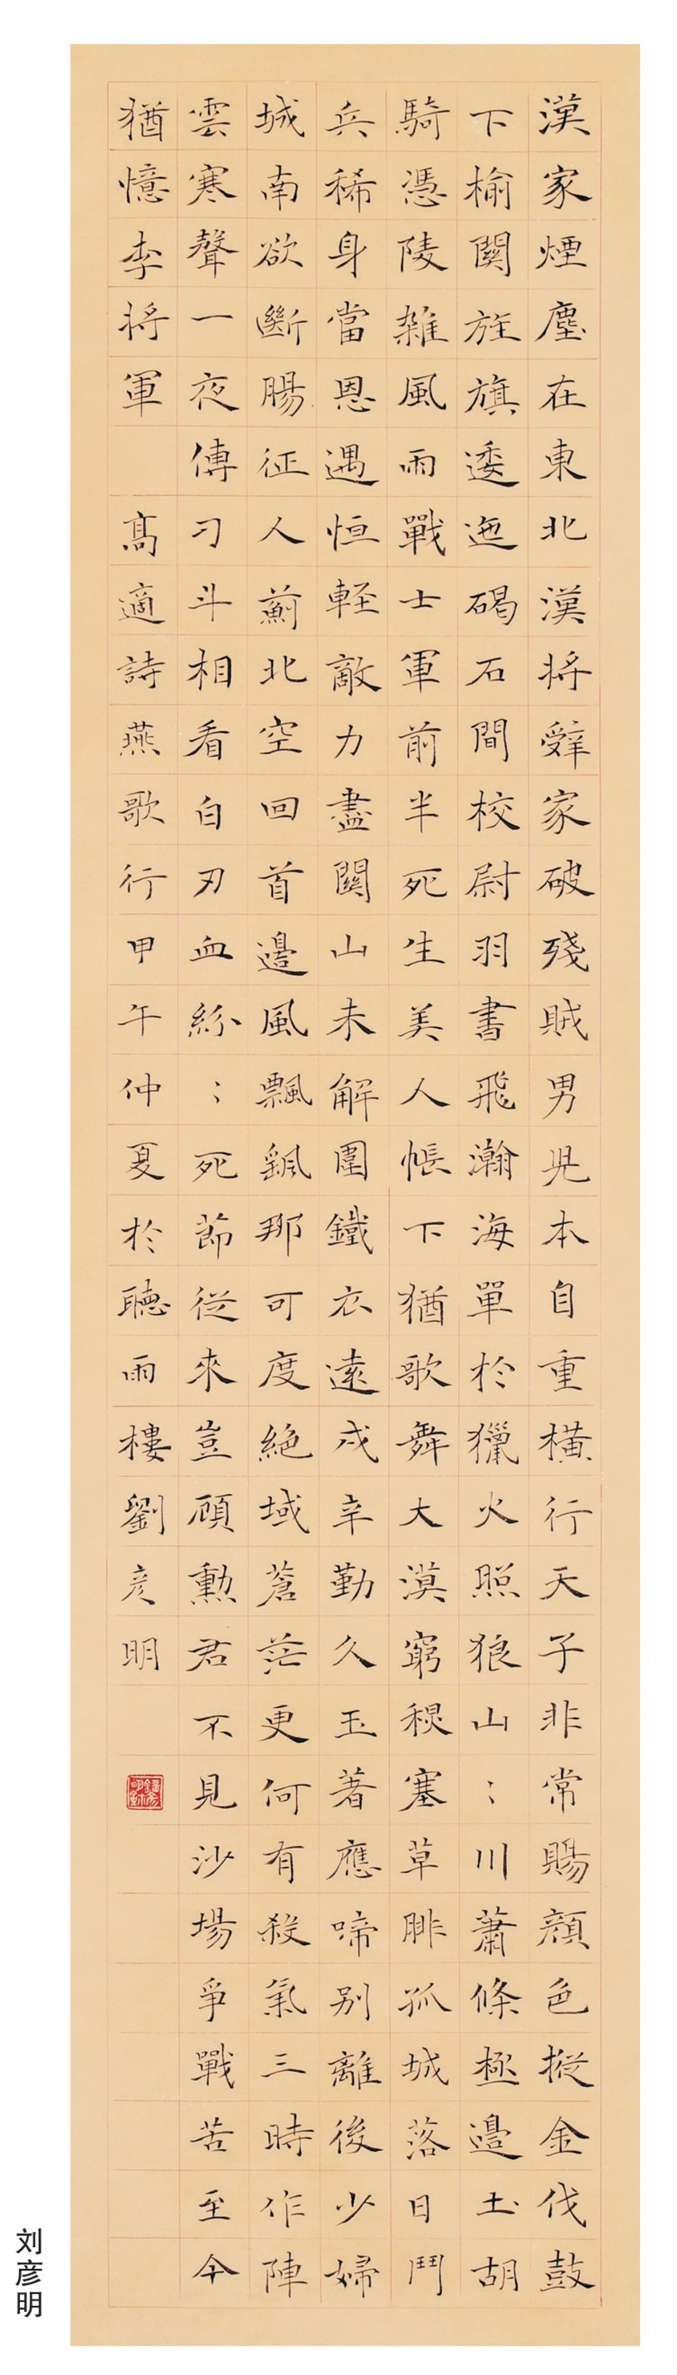 漢家煙塵在東北漢將辭家破殘賊男兒本自重橫行天子非常賜顏色摐金伐鼓
下榆關旌旗逶迤碣石間校尉羽書飛瀚海單於獵火照狼山〻川蕭條極邊土胡
騎憑陵雜風雨戰士軍前半死生美人帳下猶歌舞大漠窮穐塞草腓孤城落日鬥
兵稀身當恩遇恒軽敵力盡關山未解圍鐵衣遠戍辛勤久玉著應啼別離後少婦
城南欲斷腸征人薊北空回首邊風飄飖那可度絕域蒼茫更何有殺氣三時作陣
雲寒聲一夜傳刁斗相看白刃血紛〻死節從來豈顧勳君不見沙場爭戰苦至今
猶憶李將軍 髙適詩燕歌行甲午仲夏於聽雨樓劉彥明
刘彦明